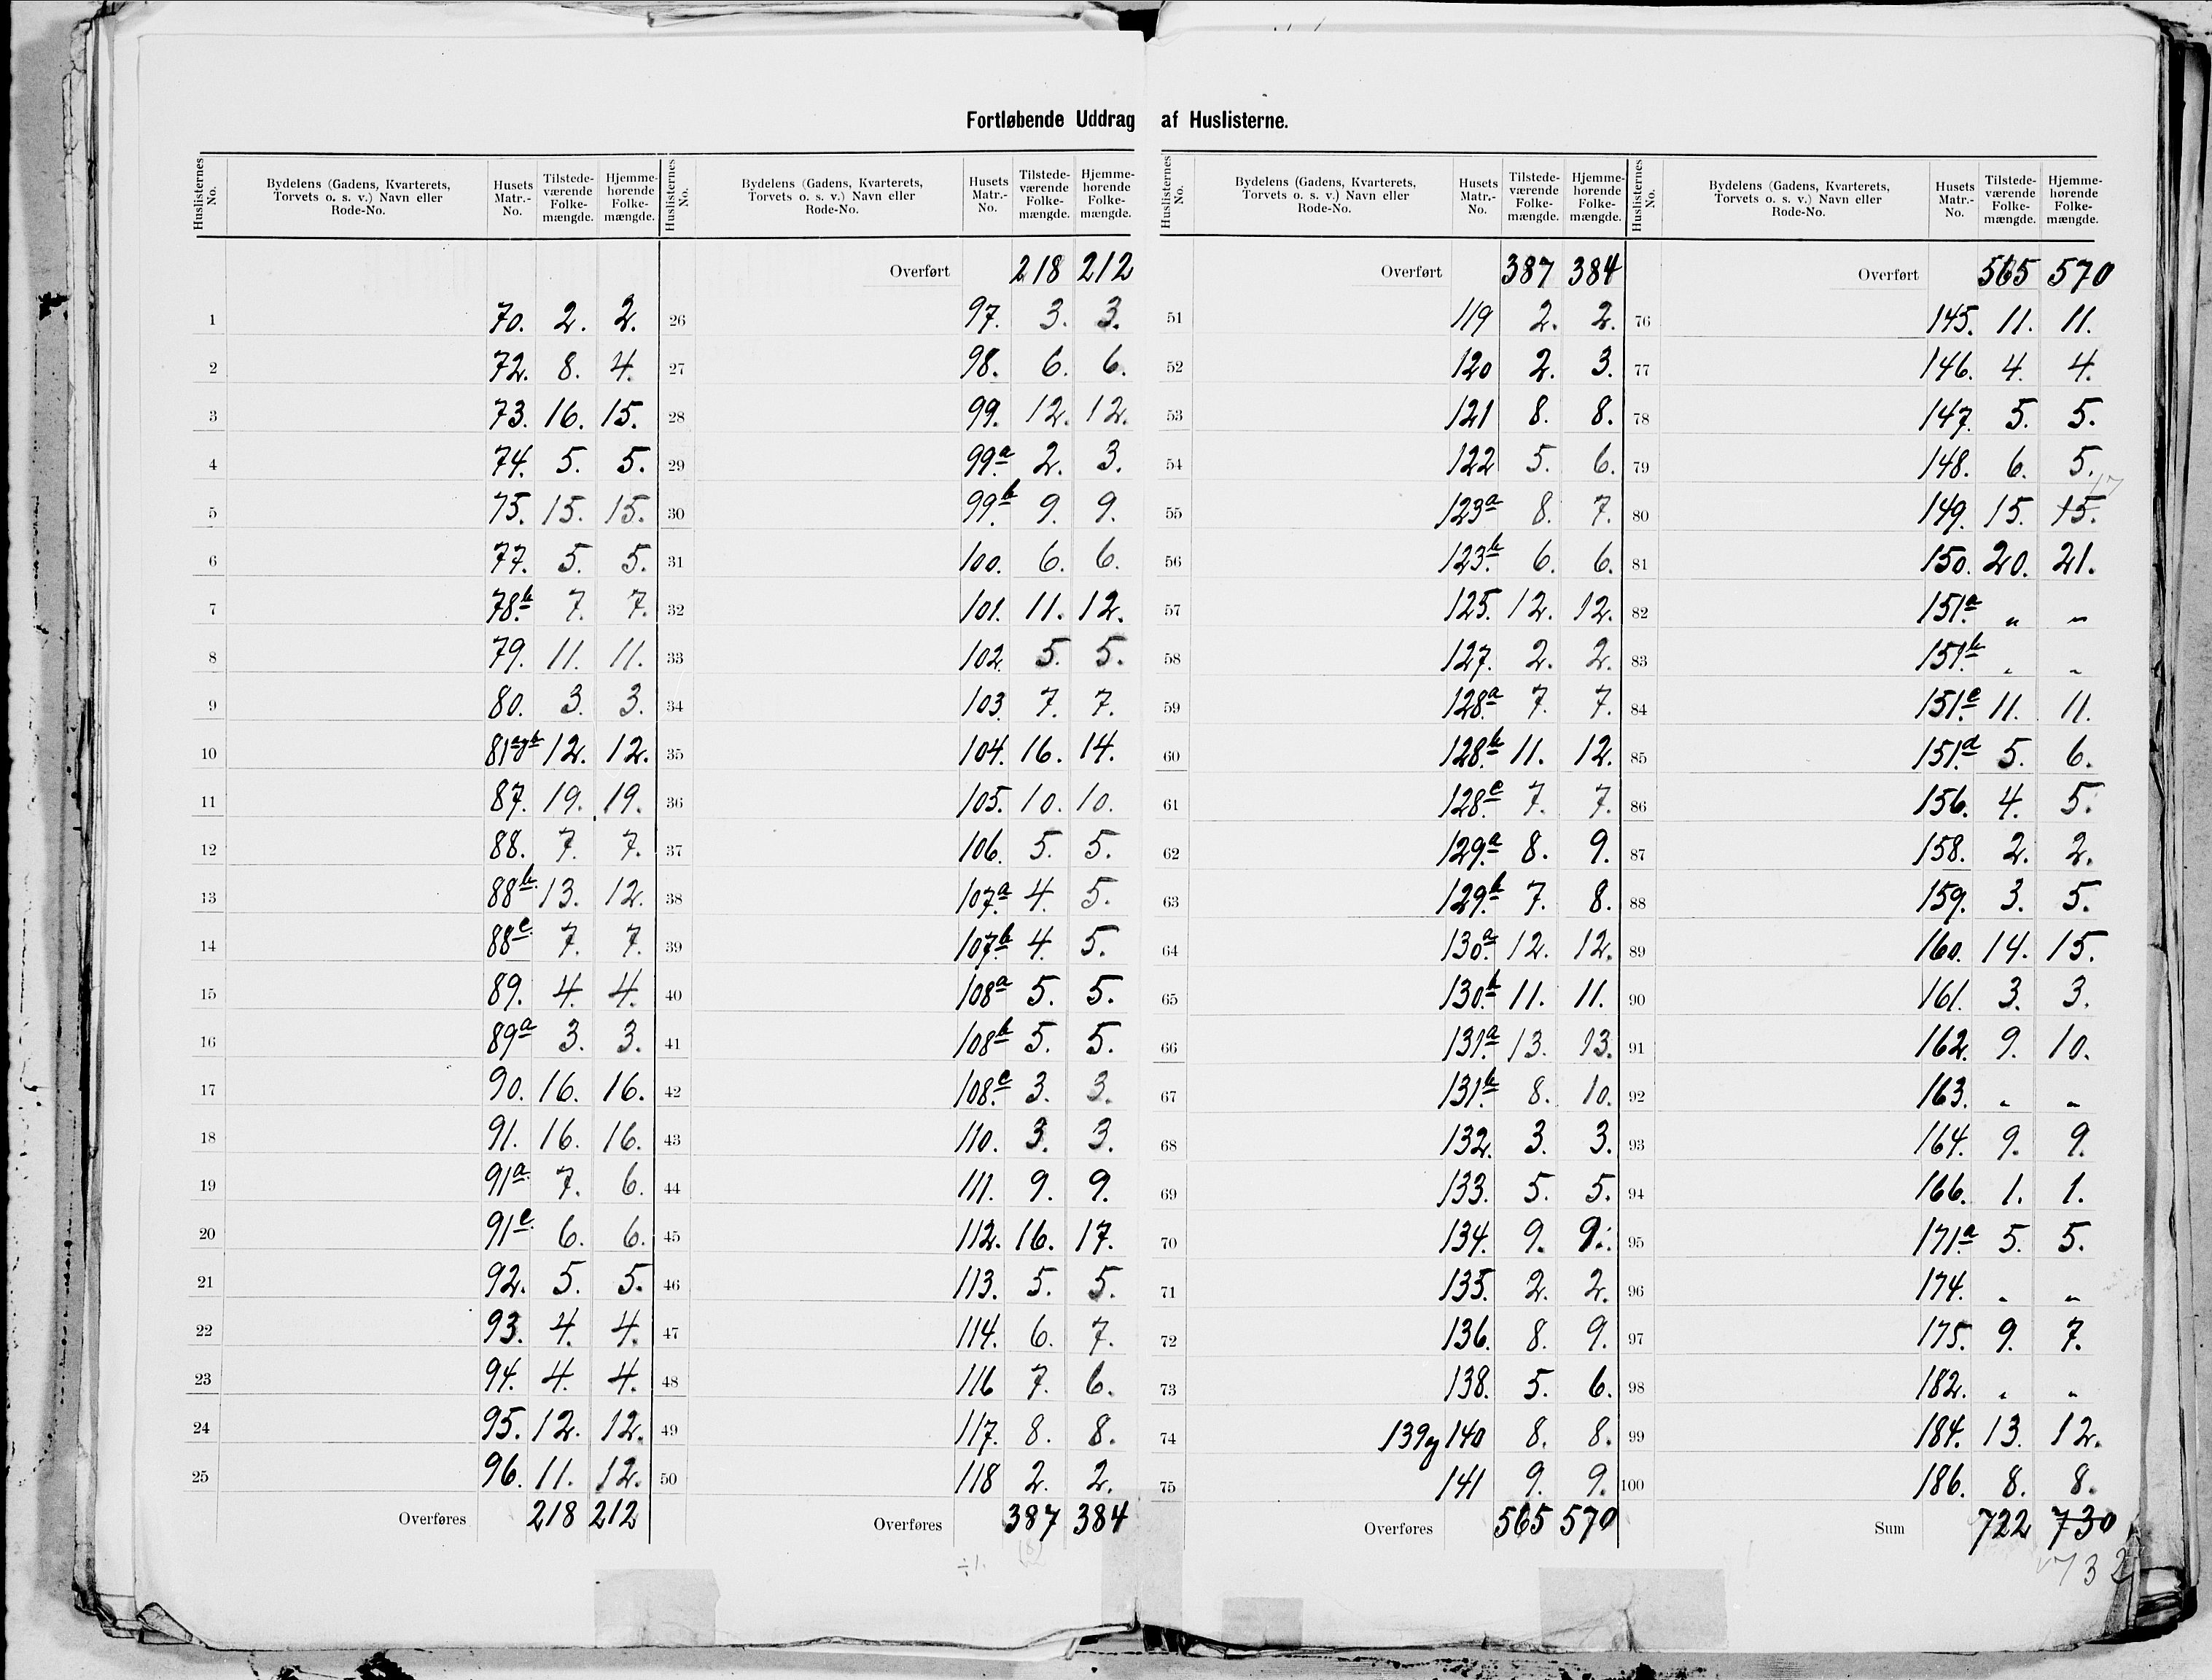 Fortløbende Uddrag af Huslisterne.
Huslisternes No. Bydelens (Gadens, Kvarterets, Torvets o. s. v.) Navn eller Rode-No. Husets Matr.-No. Tilstede-værende Folke-mængde. Hjemme-hørende Folke-mængde.
1 70. 2. 2.
2 72. 8. 4.
3 73. 16. 15.
4 74. 5. 5.
5 75. 15. 15.
6 77. 5. 5.
7 78b. 7. 7.
8 79. 11. 11.
9 80. 3. 3.
10 81a og b 12. 12.
11 87. 19. 19.
12 88. 7. 7.
13 88b. 13. 12.
14 88c. 7. 7.
15 89. 4. 4.
16 89a 3. 3.
17 90. 16. 16.
18 91. 16. 16.
19 91a. 7. 6.
20 91c. 6. 6.
21 92. 5. 5.
22 93. 4. 4.
23 94. 4. 4.
24 95. 12. 12.
25 96. 11. 12.
Overføres 218 212
Huslisternes No. Bydelens (Gadens, Kvarterets, Torvets o. s. v.) Navn eller Rode-No. Husets Matr.-No. Tilstede-værende Folke-mængde. Hjemme-hørende Folke-mængde.
Overført 218 212
26 97. 3. 3.
27 98. 6. 6.
28 99. 12. 12.
29 99a 2. 3.
30 99b. 9. 9.
31 100. 6. 6.
32 101. 11. 12.
33 102. 5. 5.
34 103. 7. 7.
35 104. 16. 14.
36 105. 10. 10.
37 106. 5. 5.
38 107a 4. 5.
39 107b. 4. 5.
40 108a 5. 5.
41 108b 5. 5.
42 108c. 3. 3.
43 110. 3. 3.
44 111. 9. 9.
45 112. 16. 17.
46 113. 5. 5.
47 114. 6. 7.
48 116 7. 6.
49 117. 8. 8.
50 118 2. 2.
Overføres 387 384
Huslisternes No. Bydelens (Gadens, Kvarterets, Torvets o. s. v.) Navn eller Rode-No. Husets Matr.-No. Tilstede-værende Folke-mængde. Hjemme-hørende Folke-mængde.
Overført 387 384
51 119 2. 2.
52 120 2. 3.
53 121 8. 8.
54 122 5. 6.
55 123a 8. 7.
56 123b. 6. 6.
57 125. 12. 12.
58 127. 2. 2.
59 128a 7. 7.
60 128b. 11. 12.
61 128c. 7. 7.
62 129a. 8. 9.
63 129b. 7. 8.
64 130a. 12. 12.
65 130b. 11. 11.
66 131a. 13. 13.
67 131b. 8. 10.
68 132. 3. 3.
69 133. 5. 5.
70 134. 9. 9.
71 135. 2. 2.
72 136. 8. 9.
73 138. 5. 6.
74 139 og 140 8. 8.
75 141 9. 9.
Overføres 565 570
Huslisternes No. Bydelens (Gadens, Kvarterets, Torvets o. s. v.) Navn eller Rode-No. Husets Matr.-No. Tilstede-værende Folke-mængde. Hjemme-hørende Folke-mængde.
Overført 565 570
76 145. 11. 11.
77 146. 4. 4.
78 147. 5. 5.
79 148. 6. 5.
80 149. 15. 15. 17
81 150. 20. 21.
82 151a. " "
83 151b. " "
84 151c. 11. 11.
85 151d. 5. 6.
86 156. 4. 5.
87 158. 2. 2.
88 159. 3. 5.
89 160. 14. 15.
90 161. 3. 3.
91 162. 9. 10.
92 163. " "
93 164. 9. 9.
94 166. 1. 1.
95 171a. 5. 5.
96 174. " "
97 175. 9. 7.
98 182. " "
99 184. 13. 12.
100 186. 8. 8.
Sum 722 730
732